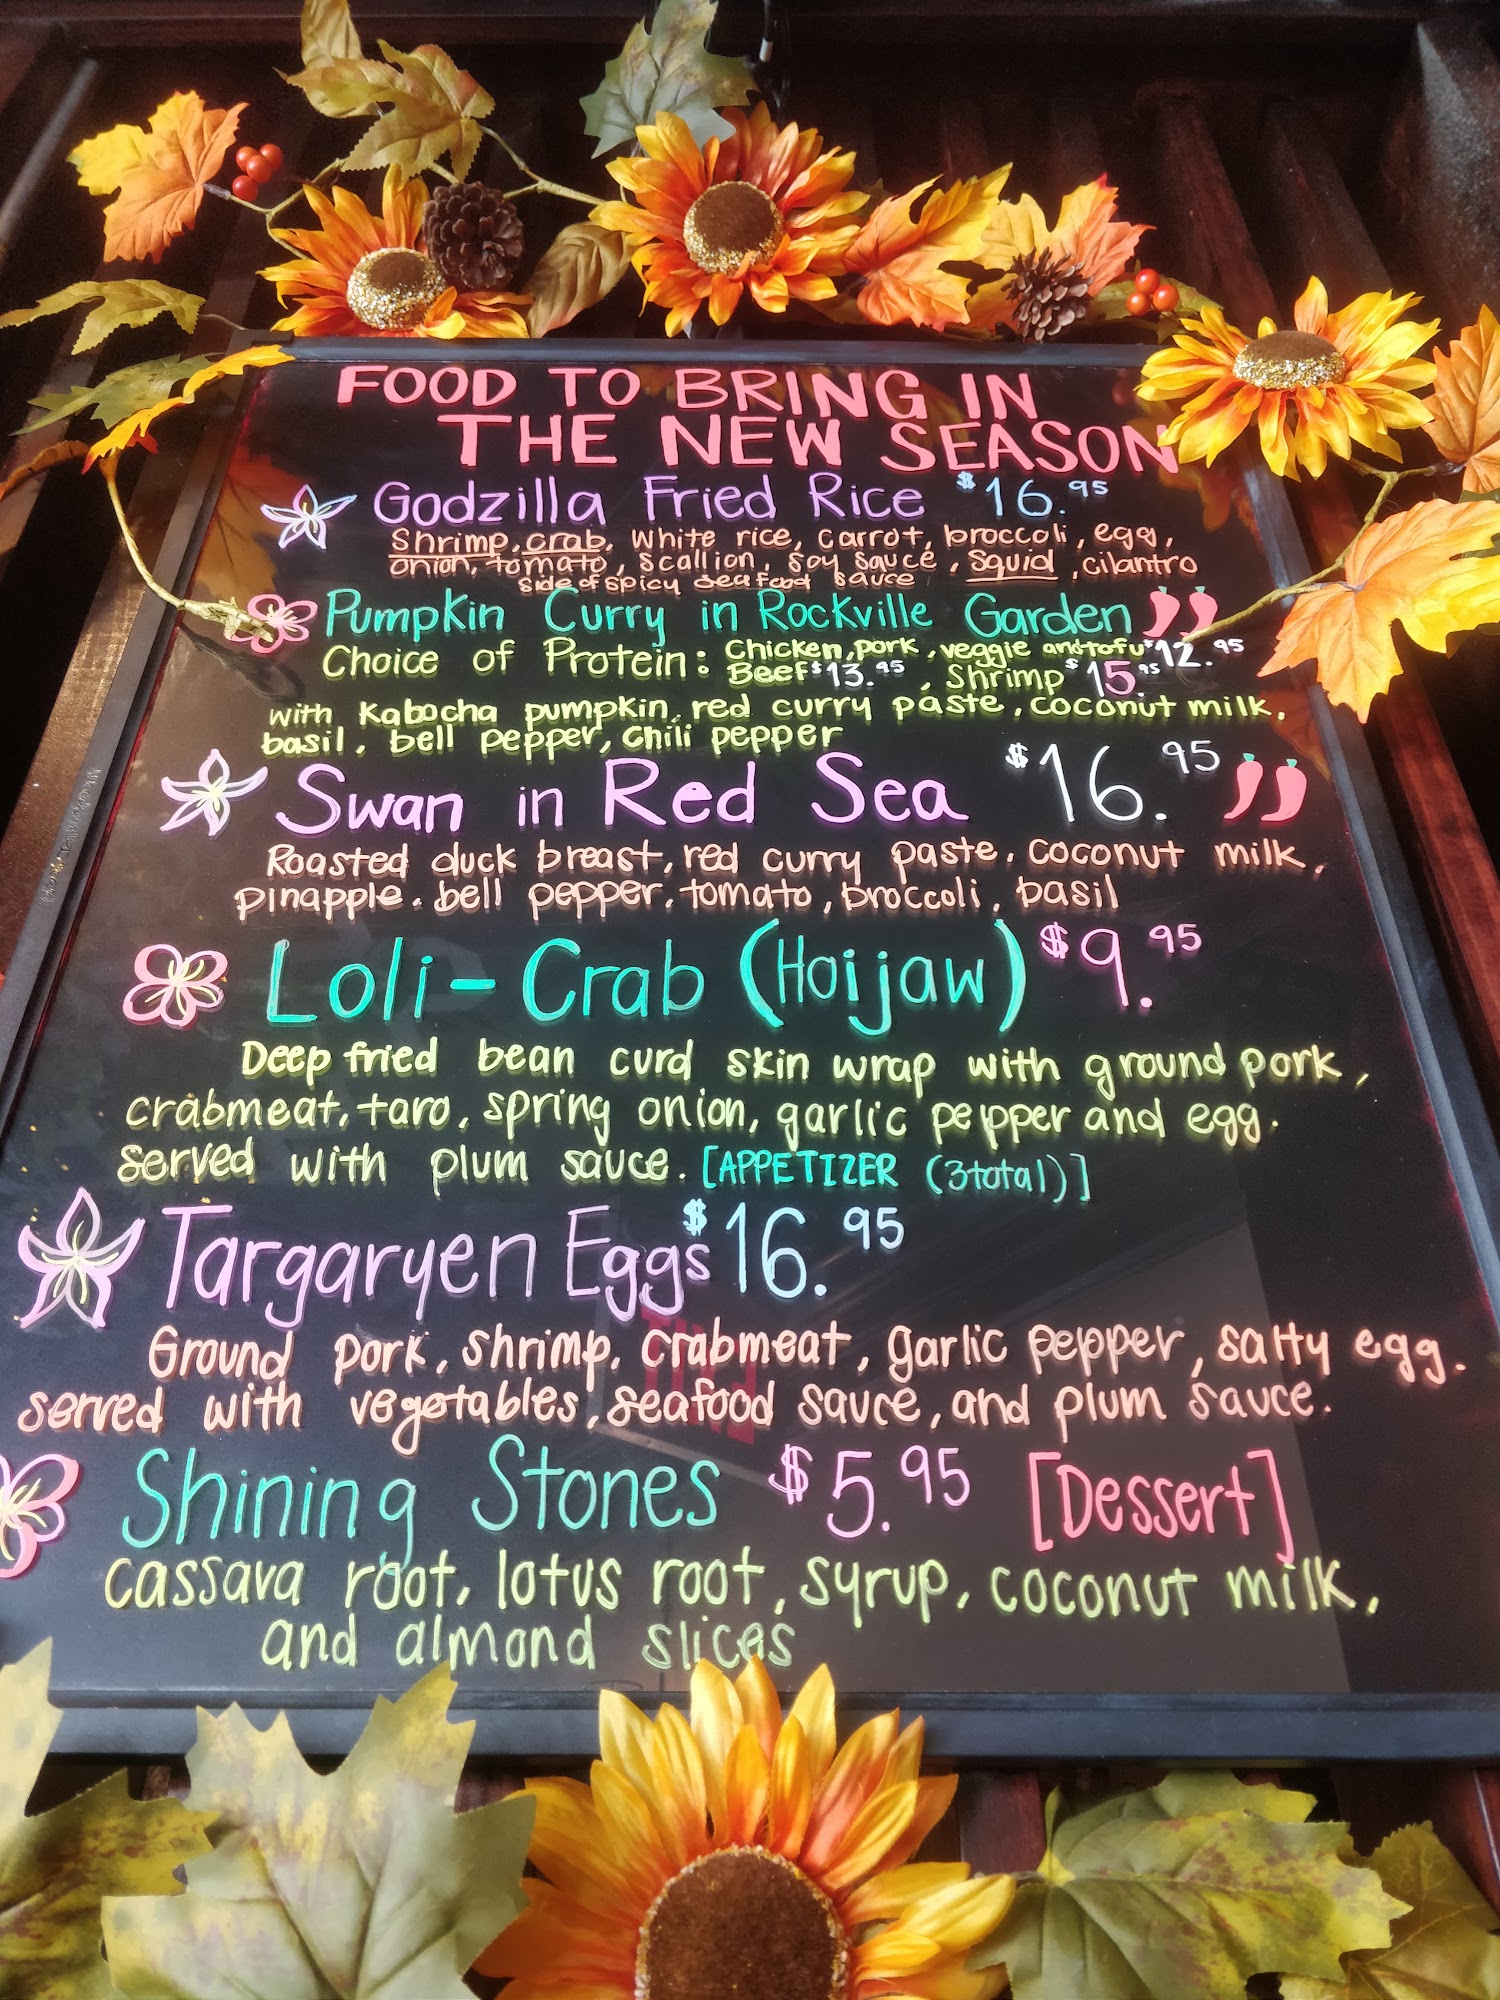 FOOD TO BRING IN
THE NEW SEASON
Godzilla Fried Rice $16.95
Shrimp, crab, white rice, carrot, broccoli, egg,
onion, tomato, scallion, soy sauce, squid, cilantro
side of spicy seafood sauce
Pumpkin Curry in Rockville Garden
Choice of Protein: Chicken, pork, veggie and tofu $12.95
Beef $13.95, Shrimp $15.95
with Kabocha pumpkin, red curry paste, coconut milk,
basil, bell pepper, chili pepper
Swan in Red Sea $16.95
Roasted duck breast, red curry paste, coconut milk,
pinapple, bell pepper, tomato, broccoli, basil
Loli-Crab (Hoijaw) $9.95
Deep fried bean curd skin wrap with ground pork,
crabmeat, taro, spring onion, garlic pepper and egg.
served with plum sauce. [APPETIZER (3total)]
Targaryen Eggs $16.95
Ground pork, shrimp, crabmeat, garlic pepper, salty egg.
served with vegetables, seafood sauce, and plum sauce.
Shining Stones $5.95 [Dessert]
cassava root, lotus root, syrup, coconut milk,
and almond slices